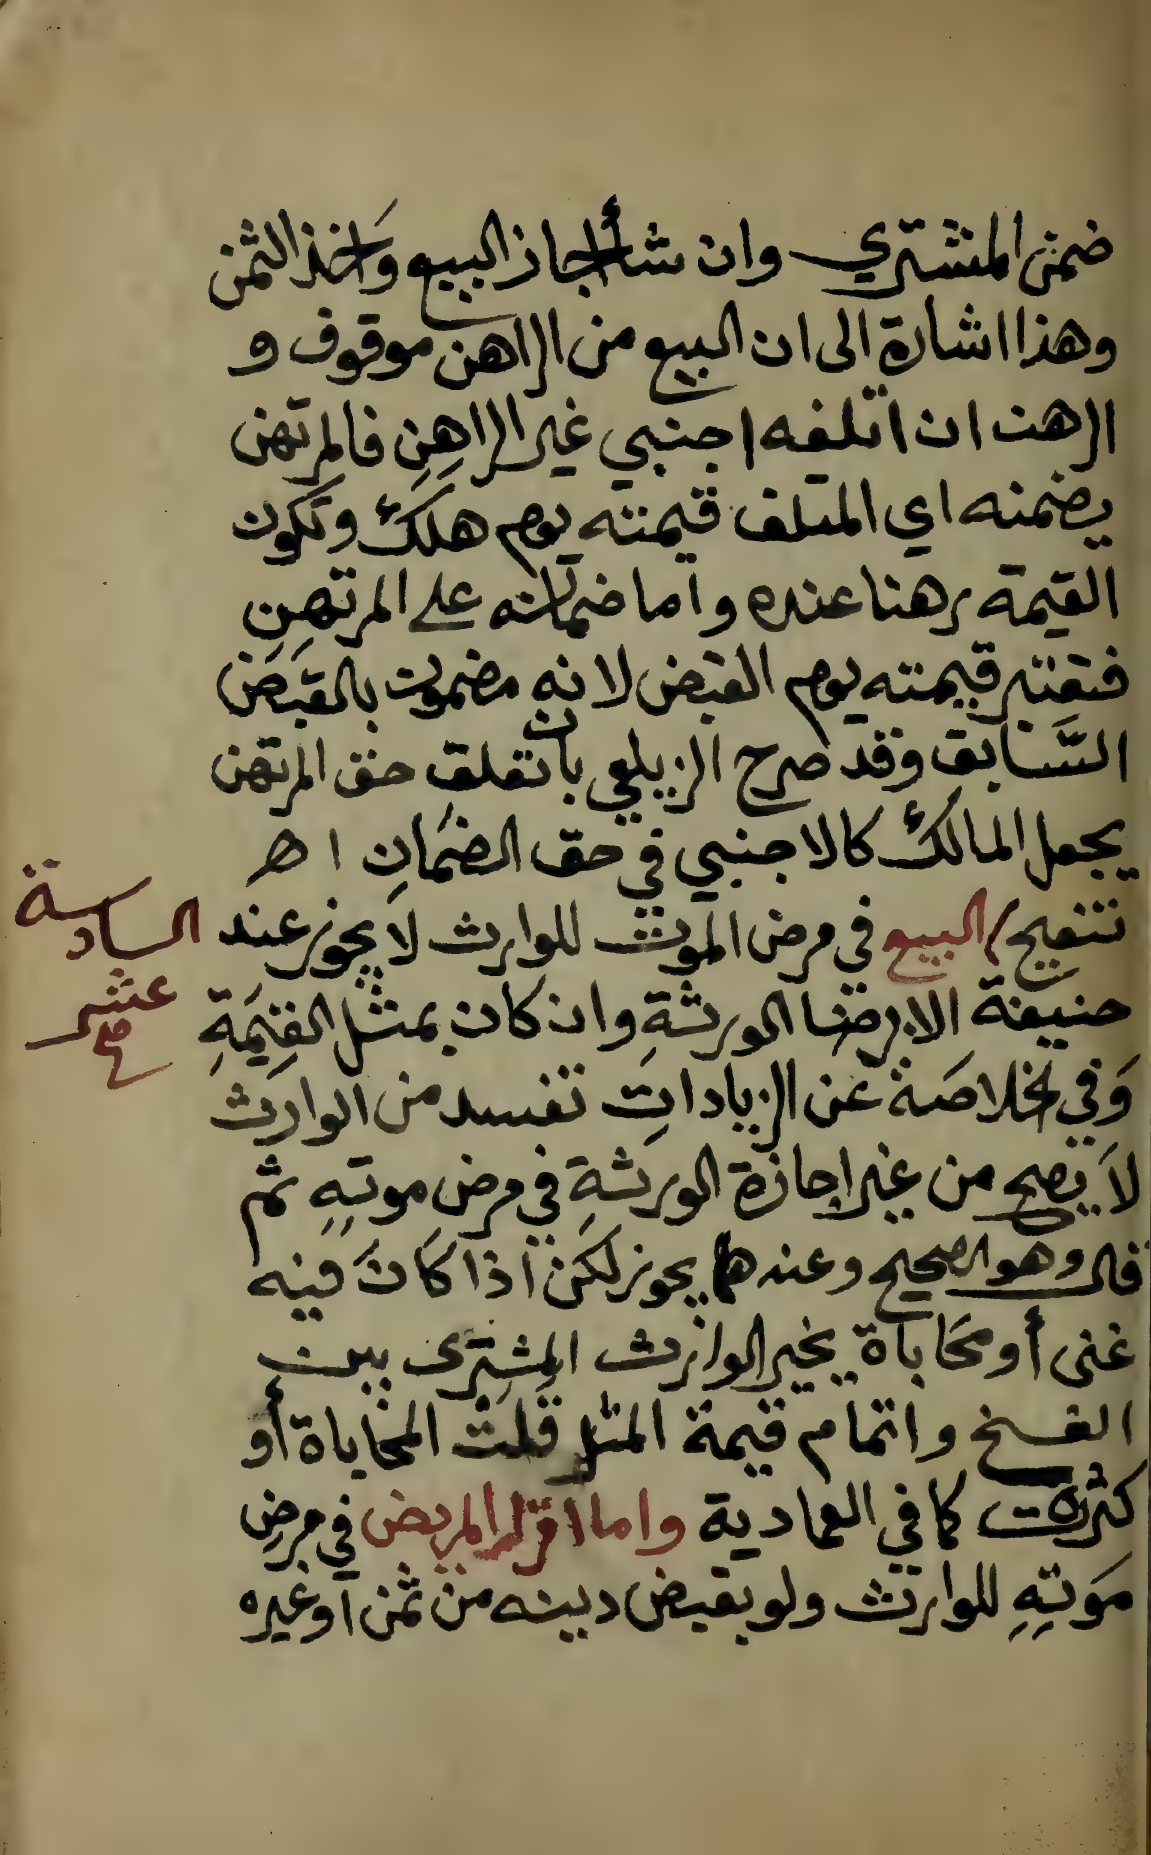 ضمن المشتري وان شأ اجاز البيع وَاخذ الثمن
وهذا اشارة الى ان البيع من الراهن موقوف و
الرهن ان اتلفه اجنبي غير الراهِنِ فالمرتهن
يضمنه اي المتلف قيمته يوم هلك وتكون
القيمة رهنا عنده واما ضمانه على المرتهِنِ
فتعتبر قيمته يوم القبض لانه مضمون بالقبَض
السَّابق وقد صرح الزيلعي بان تعلق حق المرتهن
يجعل المالك كالاجنبي في حق الضمَانِ اهـ
تنقيح البيع في مرض الموت للوارث لا يجوز عند
حنيفة الا برضا الورثةِ وان كان بمثل القيمَةِ
وَفي الخلاصَة عن الزياداتِ تفسد من الوارث
لاَ يصح من غير اجازة الورثةِ في مرض موتهِ ثم
قال وهو الصحيح وعندهما يجوز لكن اذا كَانَ فيه
غنى أو محَاباة يخير الوارث المشتِرَى بين
الفسخ واتمام قيمة المثل قلتْ المحاباة أو
كثرت كما في العمادية واما اقرار المريض في مرض
مَوتهِ للوارث ولو بقبض دينه من ثمن أو غيره
السادسة
عشر